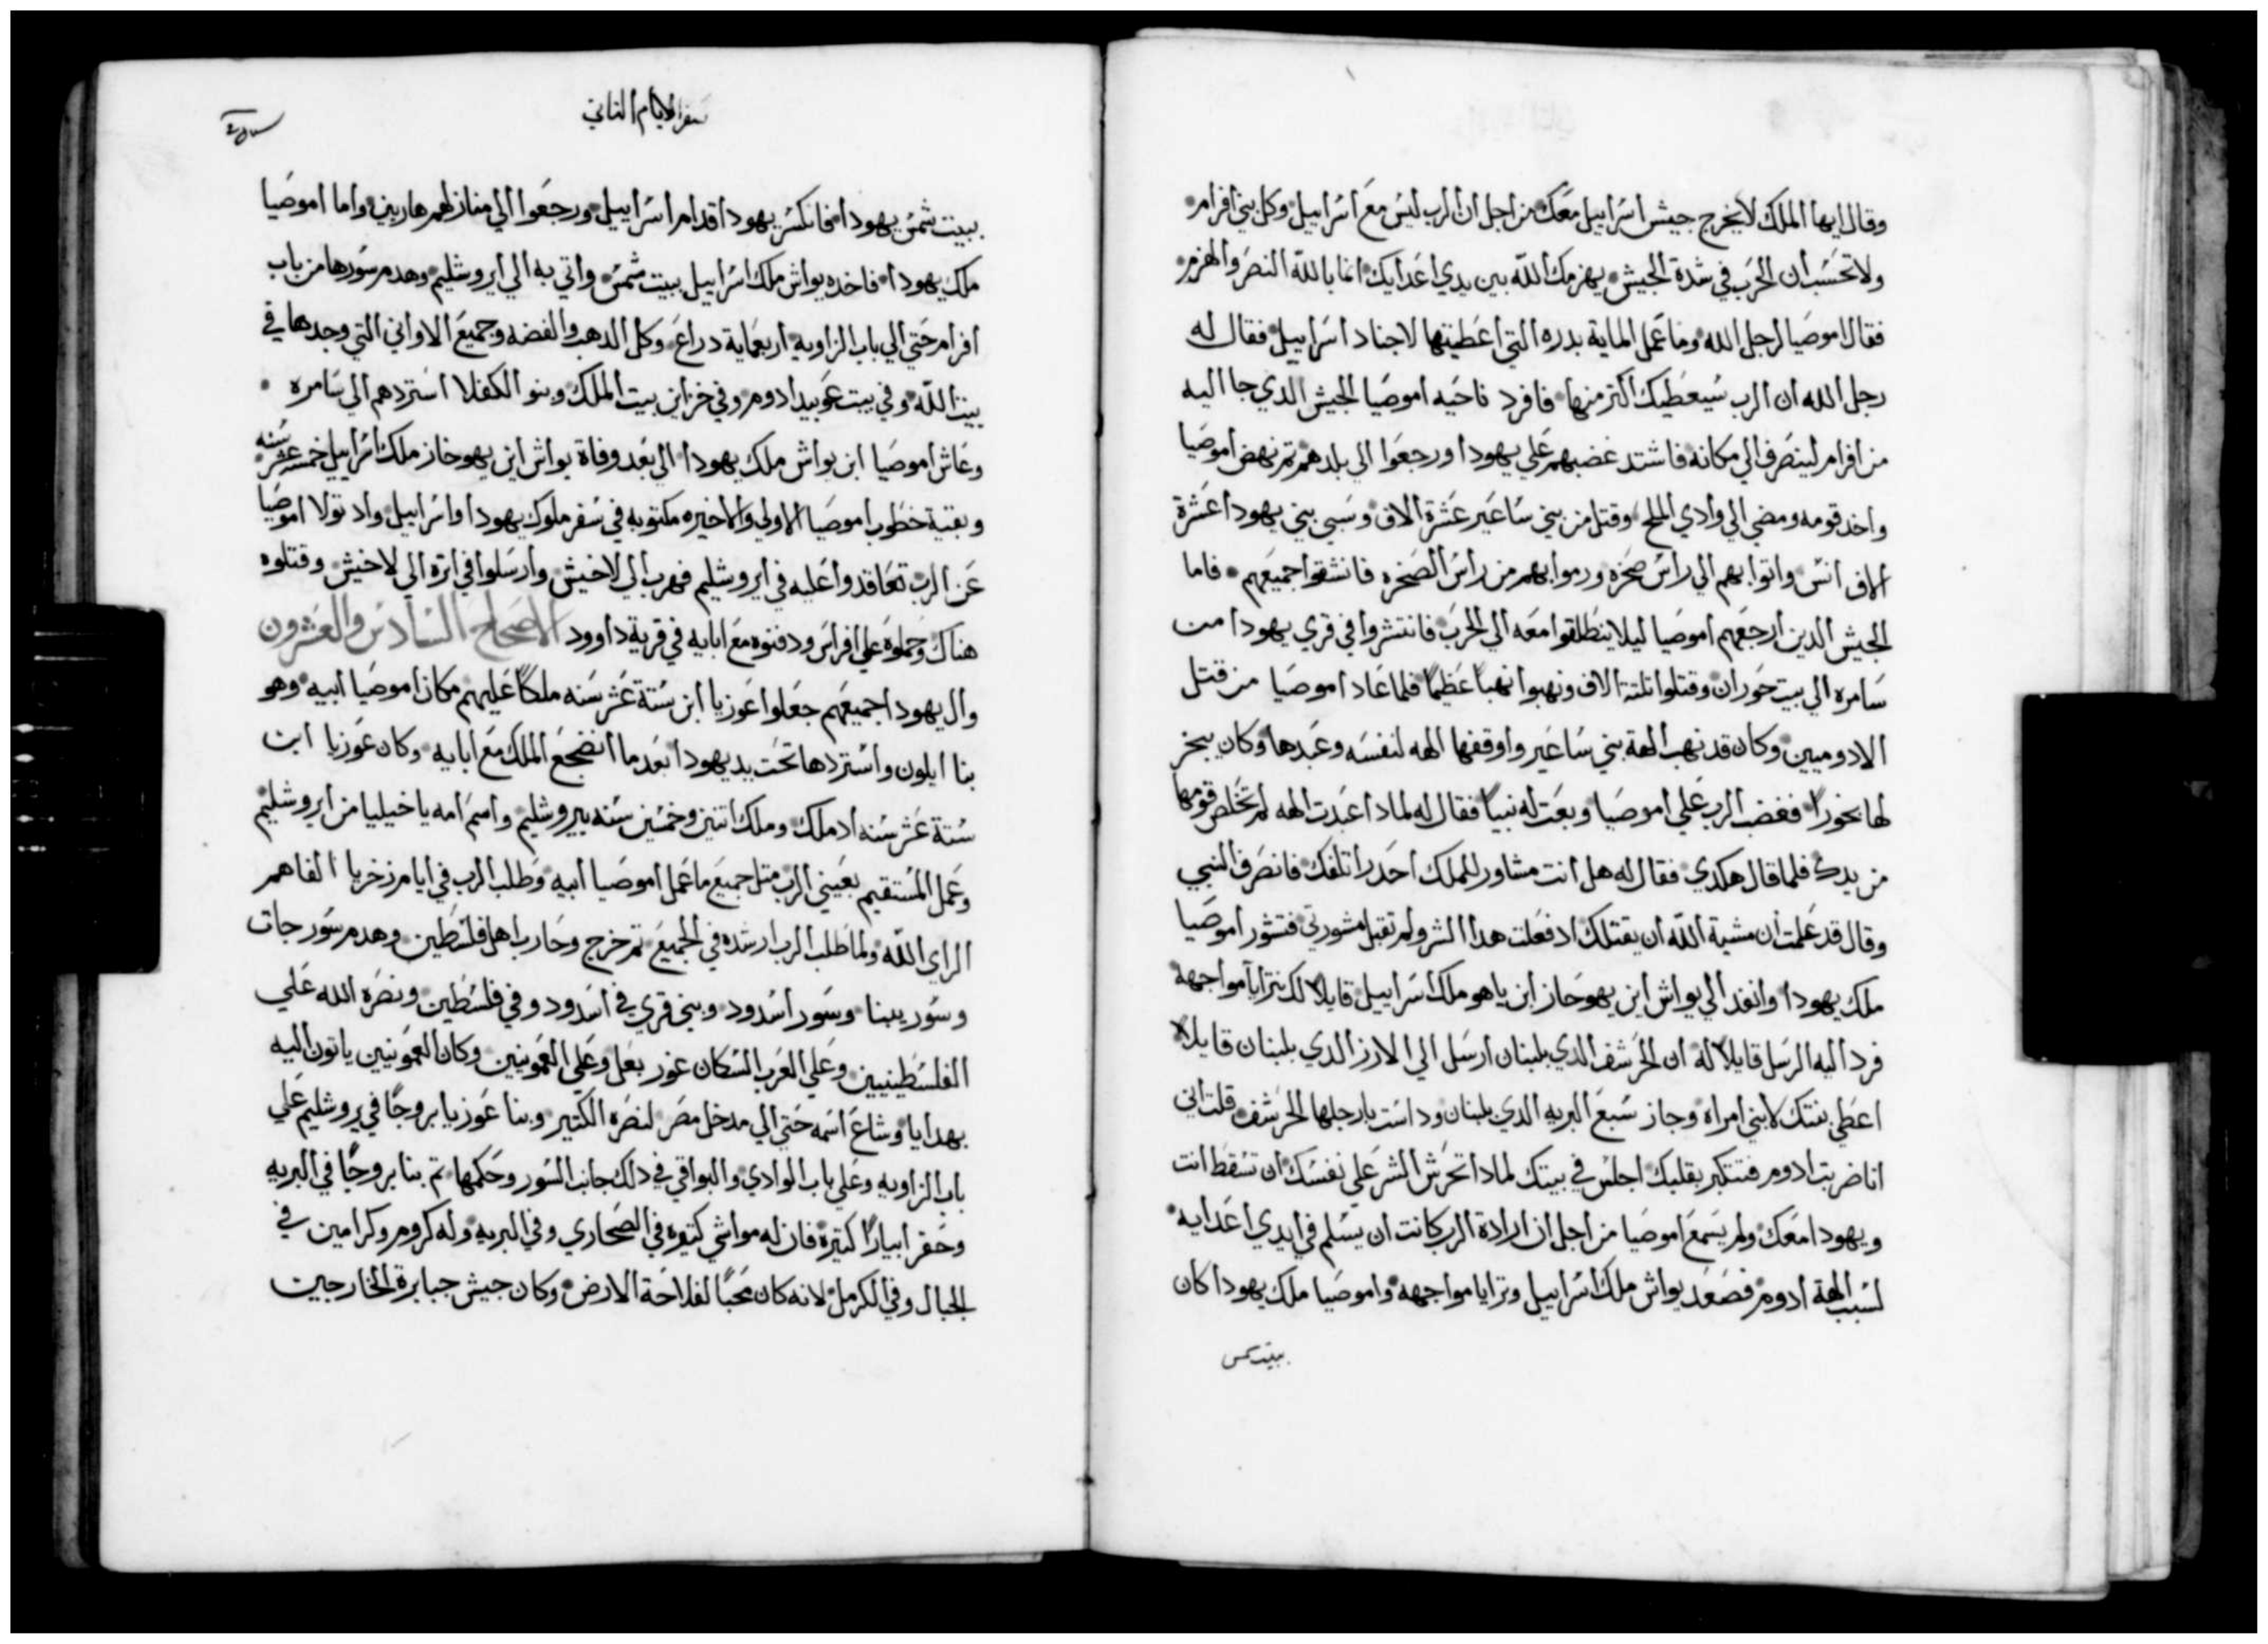 وقال ايها الملك لا يخرج جيش اسراييل معك من اجل ان الرب ليس مع اسراييل وكل بني افرام
ولا تحسب ان الحرب في شدة الجيش يهزمك الله بين يدي اعدايك انما بالله النصر والهزم
فقال اموصيا لرجل الله وما عمل الماية بدره التي اعطيتها لاجناد اسراييل فقال له
رجل الله ان الرب سيعطيك اكتر منها فافرد ناحيه اموصيا الجيش الدي جا اليه
من افرام لينصرف الي مكانه فاشتد غضبهم علي يهودا ورجعوا الي بلدهم تم نهض اموصيا
واخد قومه ومضي الي وادي الملح وقتل من بني ساعير عشرة الاف وسبي بني يهودا عشرة
الاف انس واتوا بهم الي راس صخره ورموا بهم من راس الصخره فانشقوا جميعهم فاما
الجيش الدين ارجعهم اموصيا ليلا ينطلقوا معه الي الحرب فانتشروا في قري يهودا من
سامره الي بيت حوران وقتلوا تلتة الاف ونهبوا نهبا عظيما فلما عاد اموصيا من قتل
الادوميين وكان قد نهب الهة بني ساعير واوقفها الهه لنفسه وعبدها وكان يبخر
لها بخورا فغضب الرب علي اموصيا وبعت له نبيا فقال له لمادا عبدت الهه لم تخلص قومها
من يدك فلما قال هكدي فقال له هل انت مشاور للملك احدر اتلفك فانصرف النبي
وقال قد علمت ان مشية الله ان يقتلك اد فعلت هدا الشر ولم تقبل مشورتي فتشور اموصيا
ملك يهودا وانفد الي يواش ابن يهوحاز ابن ياهو ملك اسراييل قايلا لك نترايا مواجهة
فرد اليه الرسل قايلا له ان الخرشف الدي بلبنان ارسل الي الارز الدي بلبنان قايلا
اعطي بنتك لابني امراه وجاز سبع البريه الدي بلبنان وداست بارجلها الخرشف قلت اني
انا ضربت ادوم فتتكبر بقلبك اجلس في بيتك لمادا تحرش الشر علي نفسك ان تسقط انت
ويهودا معك ولم يسمع اموصيا من اجل ان ارادة الرب كانت ان يسلم في ايدي اعدايه
لسبب الهة ادوم فصعد يواش ملك اسراييل وترايا مواجهه واموصيا ملك يهودا كان
ببيت شمس
سفر الايام التاني
ببيت شمس يهودا فانكسر يهودا قدام اسراييل ورجعوا الي منازلهم هاربين واما اموصيا
ملك يهودا فاخده يواش ملك اسراييل ببيت شمس واتي به الي ايروشليم وهدم سورها من باب
افرام حتي الي باب الزاويه اربعماية دراع وكل الدهب والفضه وجميع الاواني التي وجدها في
بيت الله وفي بيت عوبيد ادوم وفي خزاين بيت الملك وبنو الكفلا استردهم الي سامره
وعاش اموصيا ابن يواش ملك يهودا الي بعد وفاة يواش ابن يهوحاز ملك اسراييل خمسة عشر سنه
وبقية خطوب اموصيا الاولي والاخيره مكتوبه في سفر ملوك يهودا واسراييل واد تولا اموصيا
عن الرب تعاقدوا عليه في ايروشليم فهرب الي لاخيش وارسلوا في اتره الي لاخيش وقتلوه
هناك وحملوه علي افراس ودفنوه مع ابايه في قرية داوود الاصحاح السادس والعشرون
وال يهودا جميعهم جعلوا عوزيا ابن ستة عشر سنه ملكا عليهم مكان اموصيا ابيه وهو
بنا ايلون واستردها تحت يد يهودا بعد ما انضجع الملك مع ابايه وكان عوزيا ابن
ستة عشر سنه اد ملك وملك اتنين وخمسين سنه بيروشليم واسم امه ياخيليا من ايروشليم
وعمل المستقيم بعيني الرب متل جميع ما عمل اموصيا ابيه وطلب الرب في ايام زخريا الفاهم
الراي الله ولما طلب الرب ارشده في الجميع تم خرج وحارب اهل فلسطين وهدم سور جات
وسور يبنا وسور اسدود وبني قري في اسدود وفي فلسطين ونصره الله علي
الفلسطينيين وعلي العرب السكان عور بعل وعلي العمونيين وكان العمونيين ياتون اليه
بهدايا وشاع اسمه حتي الي مدخل مصر لنصره الكتير وبنا عوزيا بروجا في يروشليم علي
باب الزاويه وعلي باب الوادي والبواقي في دلك جانب السور وحكمها تم بنا بروجا في البريه
وحفر ابيارا كتيرة فان له مواشي كتيره في الصحاري وفي البريه وله كروم وكرامين في
الجبال وفي الكرمل لانه كان محبا لفلاحة الارض وكان جيش جبابرة الخارجين